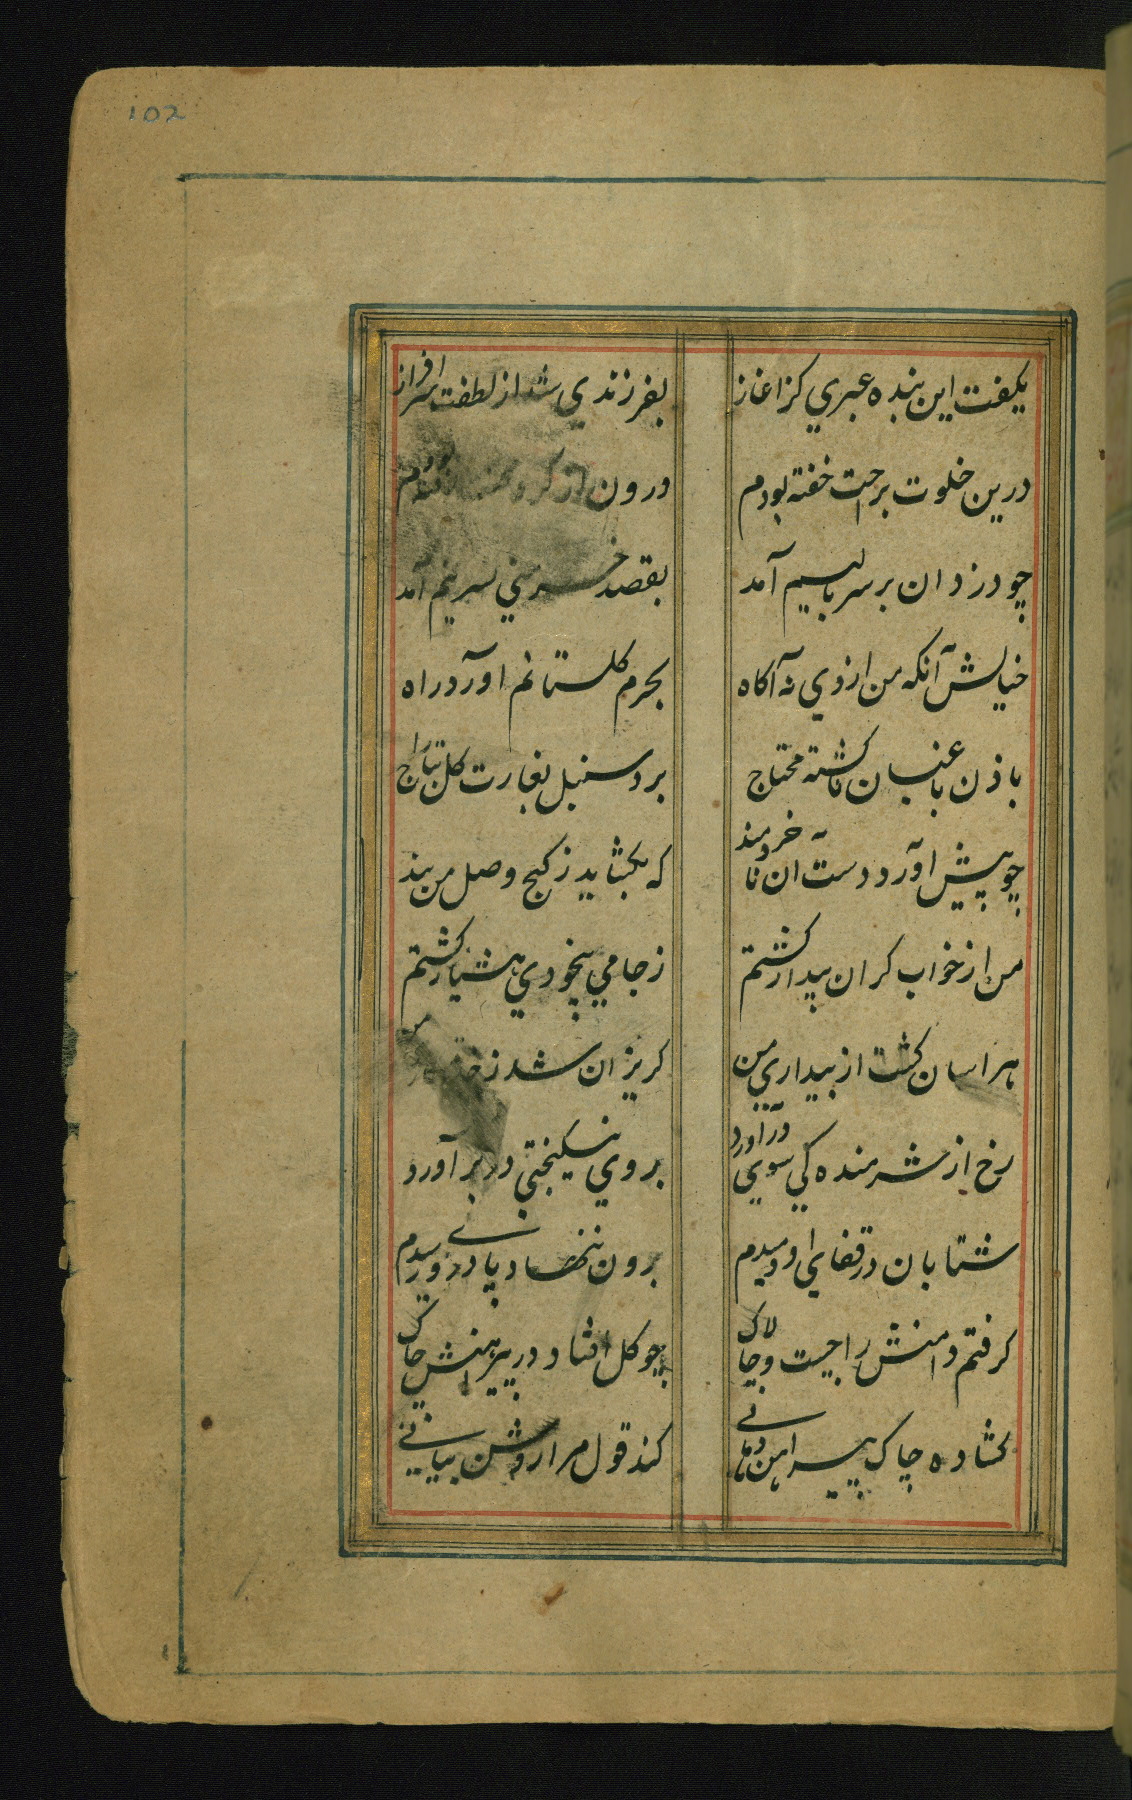 102
یکفت این بنده عبری کز اغاز
بفرزندی شد از لطفت سرافراز
درین خلوت براحت خفته بودم
درون از کرد
چو دزدان بر سر بالیسم آمد
بقصد خرمنی نسرینم آمد
خیالش آنکه من از وی نه آکاه
بحرم کلستانم اورد راه
باذن باغبان ناکشته محتاج
برد سنبل بغارت کل بتاراج
چو پیش اورد دست ان ناخردمند
که بکشاید ز کنج وصل من بند
من از خواب کران بیدار کشتم
ز جامی بیخودی هشیار کشتم
هراسان کشت از بیداری من
کریزان شد ز
رخ از شرمنده کی سوی در اورد
بروی نیکبختی در بر آورد
شتابان در قفای او دویدم
برون ننهاد پا در وی رسیدم
کرفتم دامنش را چست و چالاک
چو کل افتاد در پیراهنش چاک
کشاده چاک پیراهن دهانی
کند قول مرا روشن بیانی